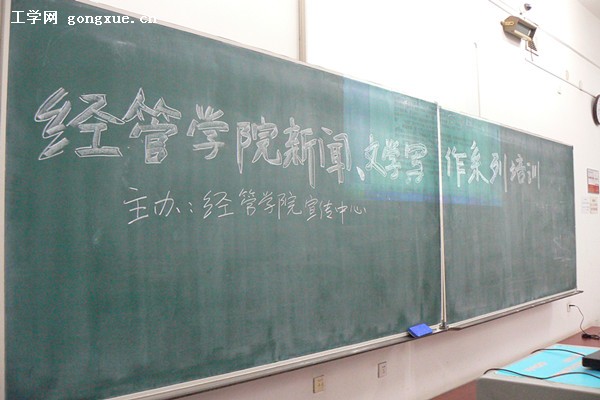 工学网 gongxue.cn
经管学院新闻、文学写作系列培训
主办：经管学院宣传中心